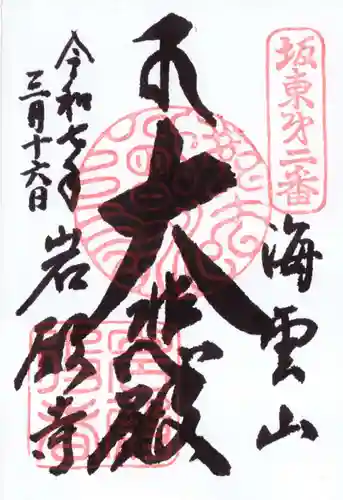 坂東第二番
海雲山
大悲殿
岩殿寺
令和七年
三月十六日